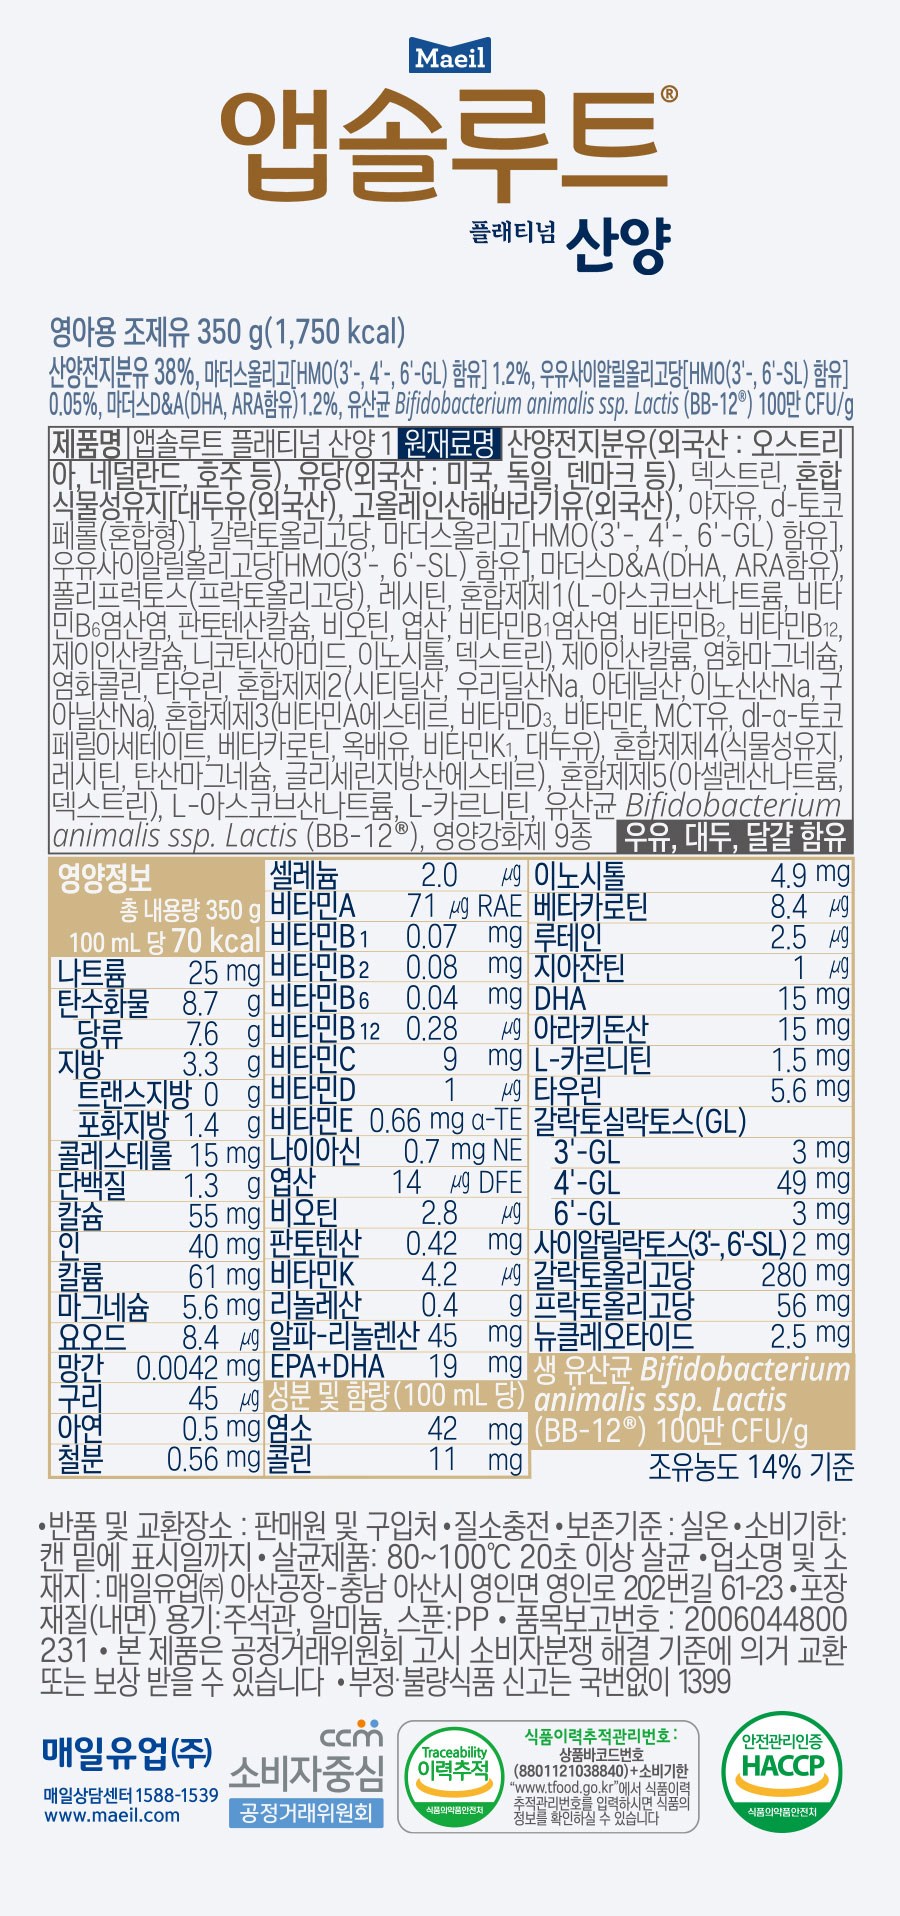 Maeil
앱솔루트®
플래티넘 산양
영아용 조제유 350 g(1,750 kcal)
산양전지분유 38%, 마더스올리고[HMO(3'-, 4'-, 6'-GL) 함유] 1.2%, 우유사이알릴올리고당[HMO(3'-, 6'-SL) 함유]
0.05%, 마더스D&A(DHA, ARA함유)1.2%, 유산균 Bifidobacterium animalis ssp. Lactis (BB-12®) 100만 CFU/g
제품명 앱솔루트 플래티넘 산양 1 원재료명 산양전지분유(외국산 : 오스트리
아, 네덜란드, 호주 등), 유당(외국산 : 미국, 독일, 덴마크 등), 덱스트린, 혼합
식물성유지[대두유(외국산), 고올레인산해바라기유(외국산), 야자유, d-토코
페롤(혼합형)], 갈락토올리고당, 마더스올리고[HMO(3'-, 4'-, 6'-GL) 함유],
우유사이알릴올리고당[HMO(3'-, 6'-SL) 함유], 마더스D&A(DHA, ARA함유),
폴리프럭토스(프락토올리고당), 레시틴, 혼합제제1(L-아스코브산나트륨, 비타
민B6염산염, 판토텐산칼슘, 비오틴, 엽산, 비타민B1염산염, 비타민B2, 비타민B12,
제이인산칼슘, 니코틴산아미드, 이노시톨, 덱스트린), 제이인산칼륨, 염화마그네슘,
염화콜린, 타우린, 혼합제제2(시티딜산, 우리딜산Na, 아데닐산, 이노신산Na, 구
아닐산Na), 혼합제제3(비타민A에스테르, 비타민D3, 비타민E, MCT유, dl-α-토코
페릴아세테이트, 베타카로틴, 옥배유, 비타민K1, 대두유), 혼합제제4(식물성유지,
레시틴, 탄산마그네슘, 글리세린지방산에스테르), 혼합제제5(아셀렌산나트륨,
덱스트린), L-아스코브산나트륨, L-카르니틴, 유산균 Bifidobacterium
animalis ssp. Lactis (BB-12®), 영양강화제 9종 우유, 대두, 달걀 함유
영양정보
총 내용량 350 g
100 mL 당 70 kcal
나트륨 25 mg
탄수화물 8.7 g
당류 7.6 g
지방 3.3 g
트랜스지방 0 g
포화지방 1.4 g
콜레스테롤 15 mg
단백질 1.3 g
칼슘 55 mg
인 40 mg
칼륨 61 mg
마그네슘 5.6 mg
요오드 8.4 μg
망간 0.0042 mg
구리 45 μg
아연 0.5 mg
철분 0.56 mg
셀레늄 2.0 μg
비타민A 71 μg RAE
비타민B1 0.07 mg
비타민B2 0.08 mg
비타민B6 0.04 mg
비타민B12 0.28 μg
비타민C 9 mg
비타민D 1 μg
비타민E 0.66 mg α-TE
나이아신 0.7 mg NE
엽산 14 μg DFE
비오틴 2.8 μg
판토텐산 0.42 mg
비타민K 4.2 μg
리놀레산 0.4 g
알파-리놀렌산 45 mg
EPA+DHA 19 mg
성분 및 함량(100 mL 당)
염소 42 mg
콜린 11 mg
이노시톨 4.9 mg
베타카로틴 8.4 μg
루테인 2.5 μg
지아잔틴 1 μg
DHA 15 mg
아라키돈산 15 mg
L-카르니틴 1.5 mg
타우린 5.6 mg
갈락토실락토스(GL)
3'-GL 3 mg
4'-GL 49 mg
6'-GL 3 mg
사이알릴락토스(3'-, 6'-SL) 2 mg
갈락토올리고당 280 mg
프락토올리고당 56 mg
뉴클레오타이드 2.5 mg
생 유산균 Bifidobacterium
animalis ssp. Lactis
(BB-12®) 100만 CFU/g
조유농도 14% 기준
•반품 및 교환장소 : 판매원 및 구입처 •질소충전 •보존기준 : 실온 •소비기한:
캔 밑에 표시일까지 • 살균제품: 80~100℃ 20초 이상 살균 •업소명 및 소
재지 : 매일유업㈜ 아산공장-충남 아산시 영인면 영인로 202번길 61-23 •포장
재질(내면) 용기:주석관, 알미늄, 스푼:PP • 품목보고번호 : 2006044800
231 • 본 제품은 공정거래위원회 고시 소비자분쟁 해결 기준에 의거 교환
또는 보상 받을 수 있습니다 •부정·불량식품 신고는 국번없이 1399
매일유업(주)
매일상담센터 1588-1539
www.maeil.com
ccm
소비자중심
공정거래위원회
Traceability
이력추적
식품의약품안전처
식품이력추적관리번호 :
상품바코드번호
(8801121038840)+소비기한
"www.tfood.go.kr"에서 식품이력
추적관리번호를 입력하시면 식품의
정보를 확인하실 수 있습니다
안전관리인증
HACCP
식품의약품안전처